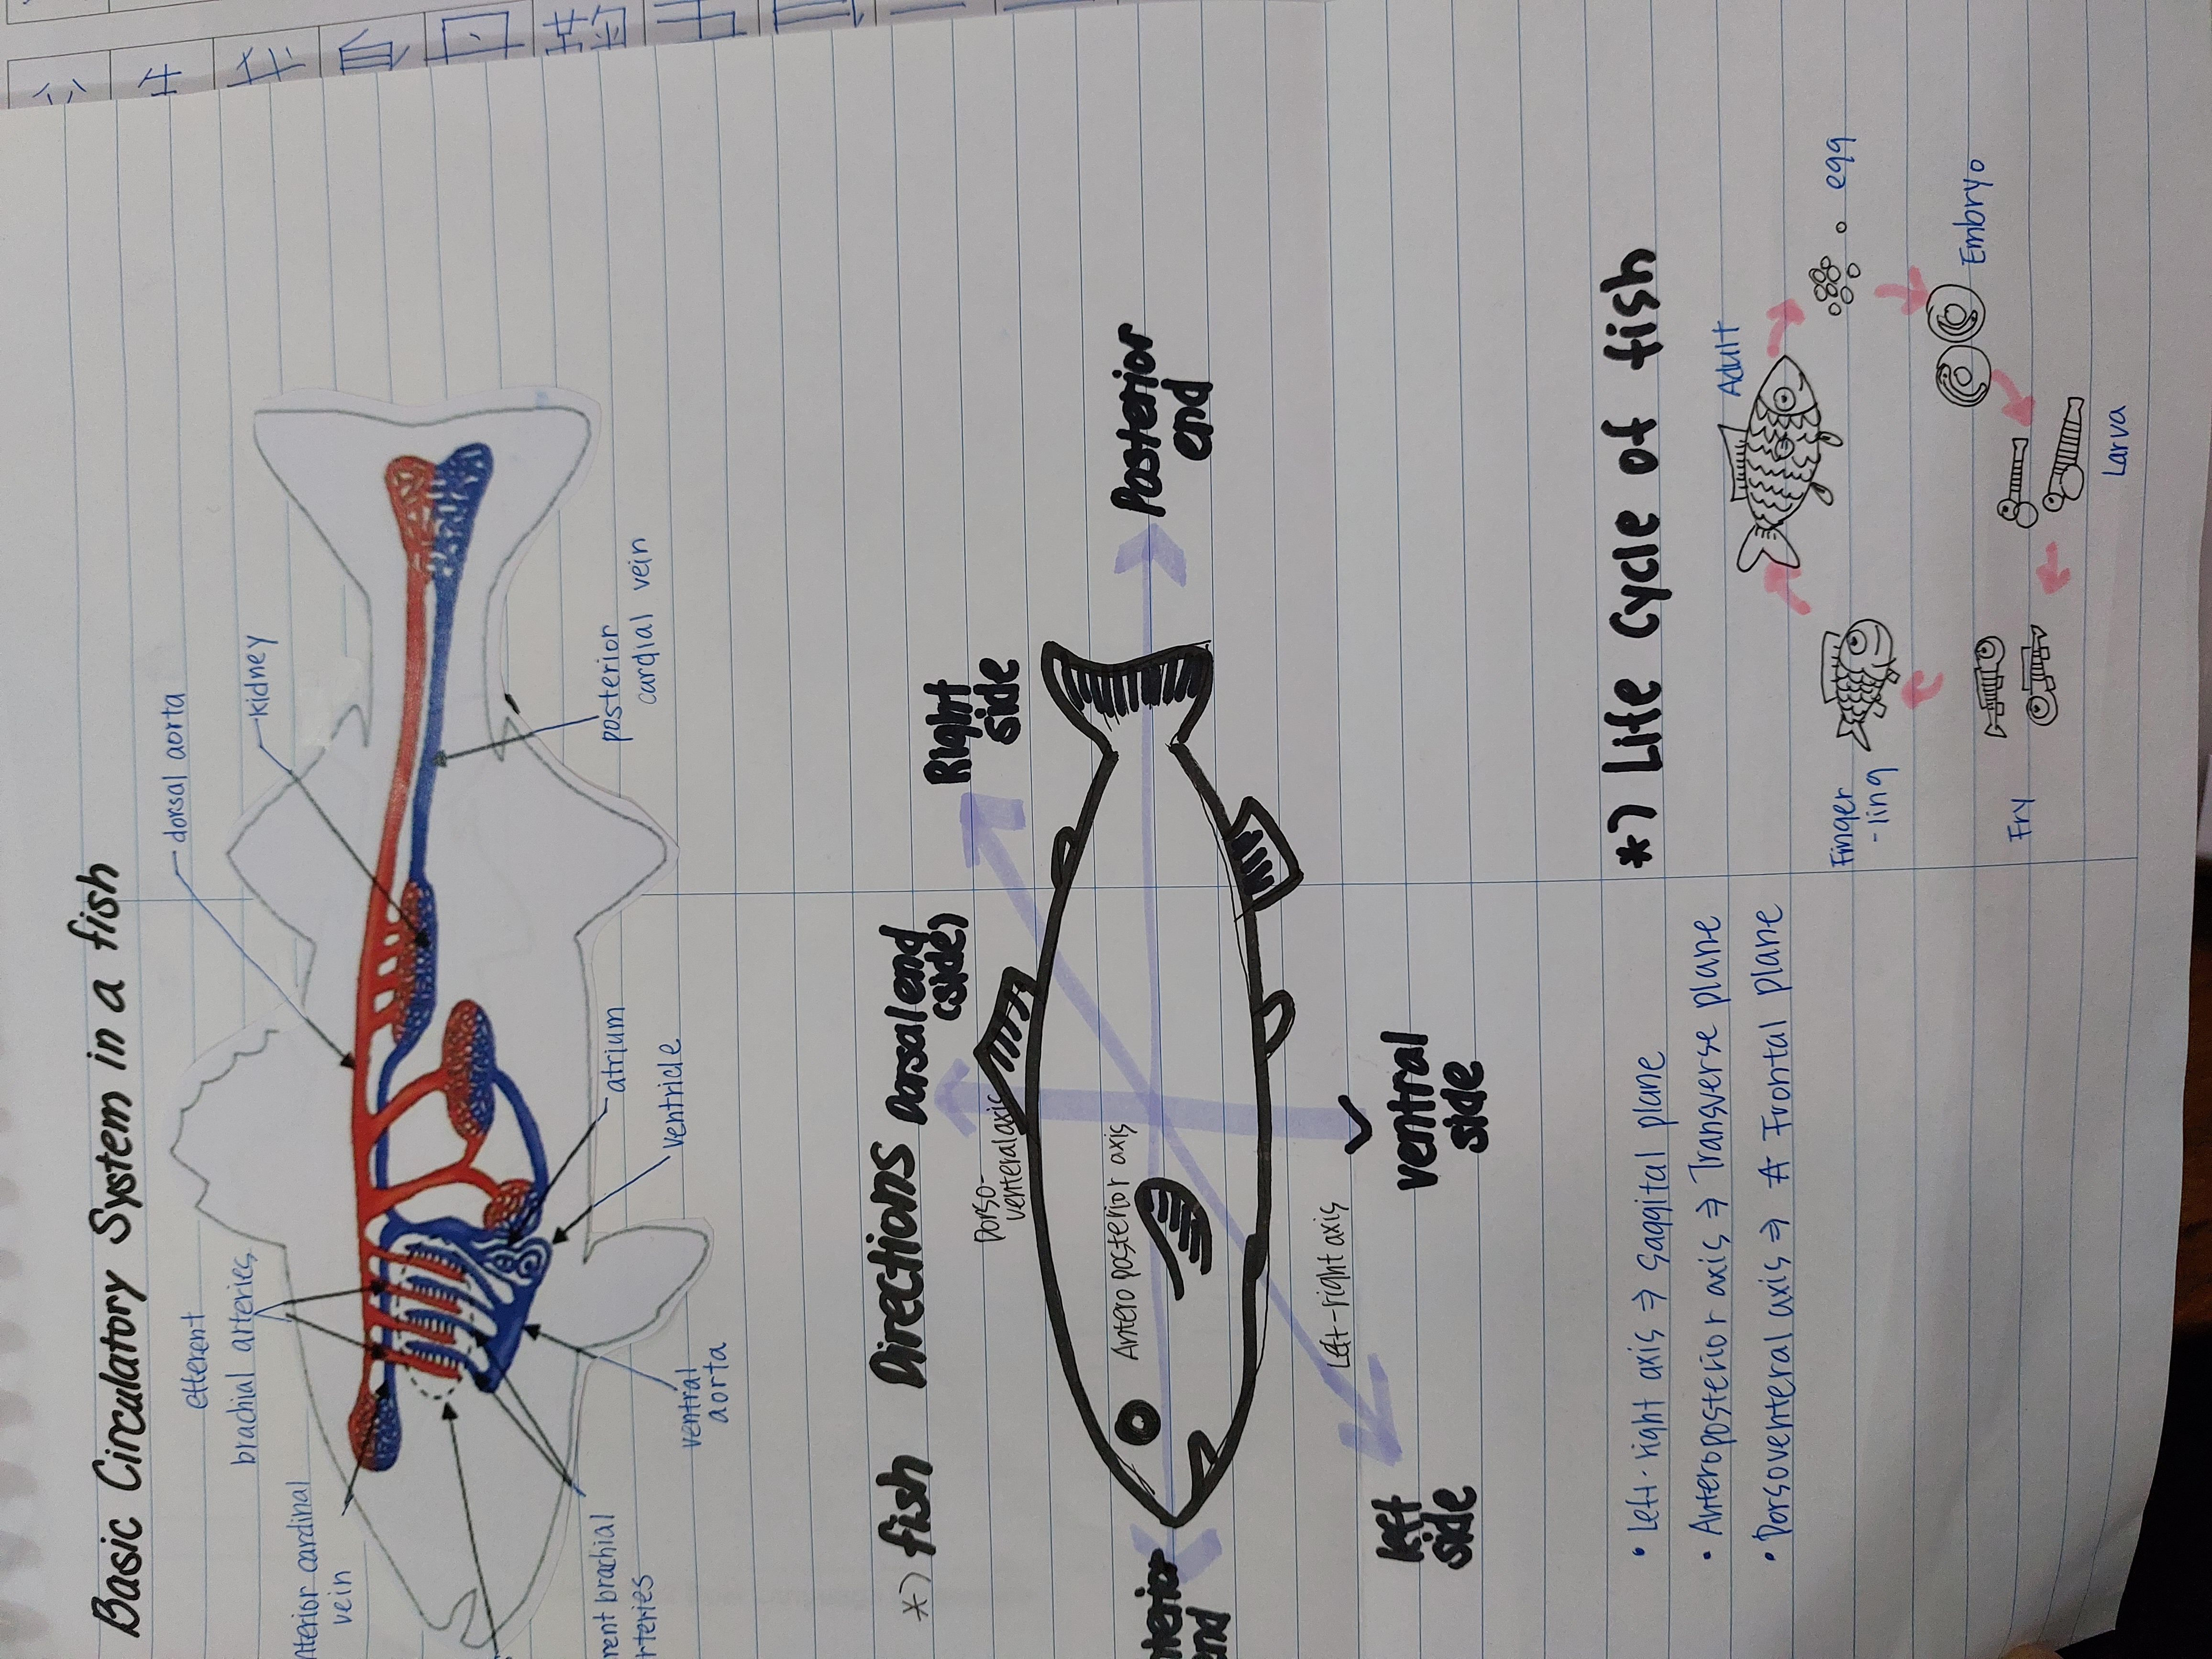 Basic Circulatory System in a fish
dorsal aorta
kidney
efferent
brachial arteries
vein
posterior
cardial vein
atrium
ventricle
ventral
aorta
*) fish Directions
Dorsal end
(side)
Right
side
Dorso-
venteral axis
Antero posterior axis
Posterior
end
Left-right axis
ventral
side
left
side
• Left-right axis ⇒ saggital plane
• Anteroposterior axis ⇒ Transverse plane
• Dorsoventeral axis ⇒ Frontal plane
*) Life Cycle of fish
Adult
egg
Embryo
Larva
Fry
Finger
-ling
公
生
自
日